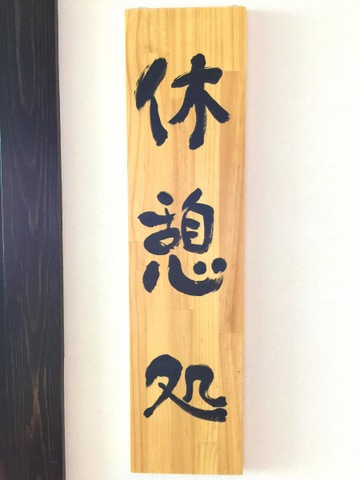 休憩処